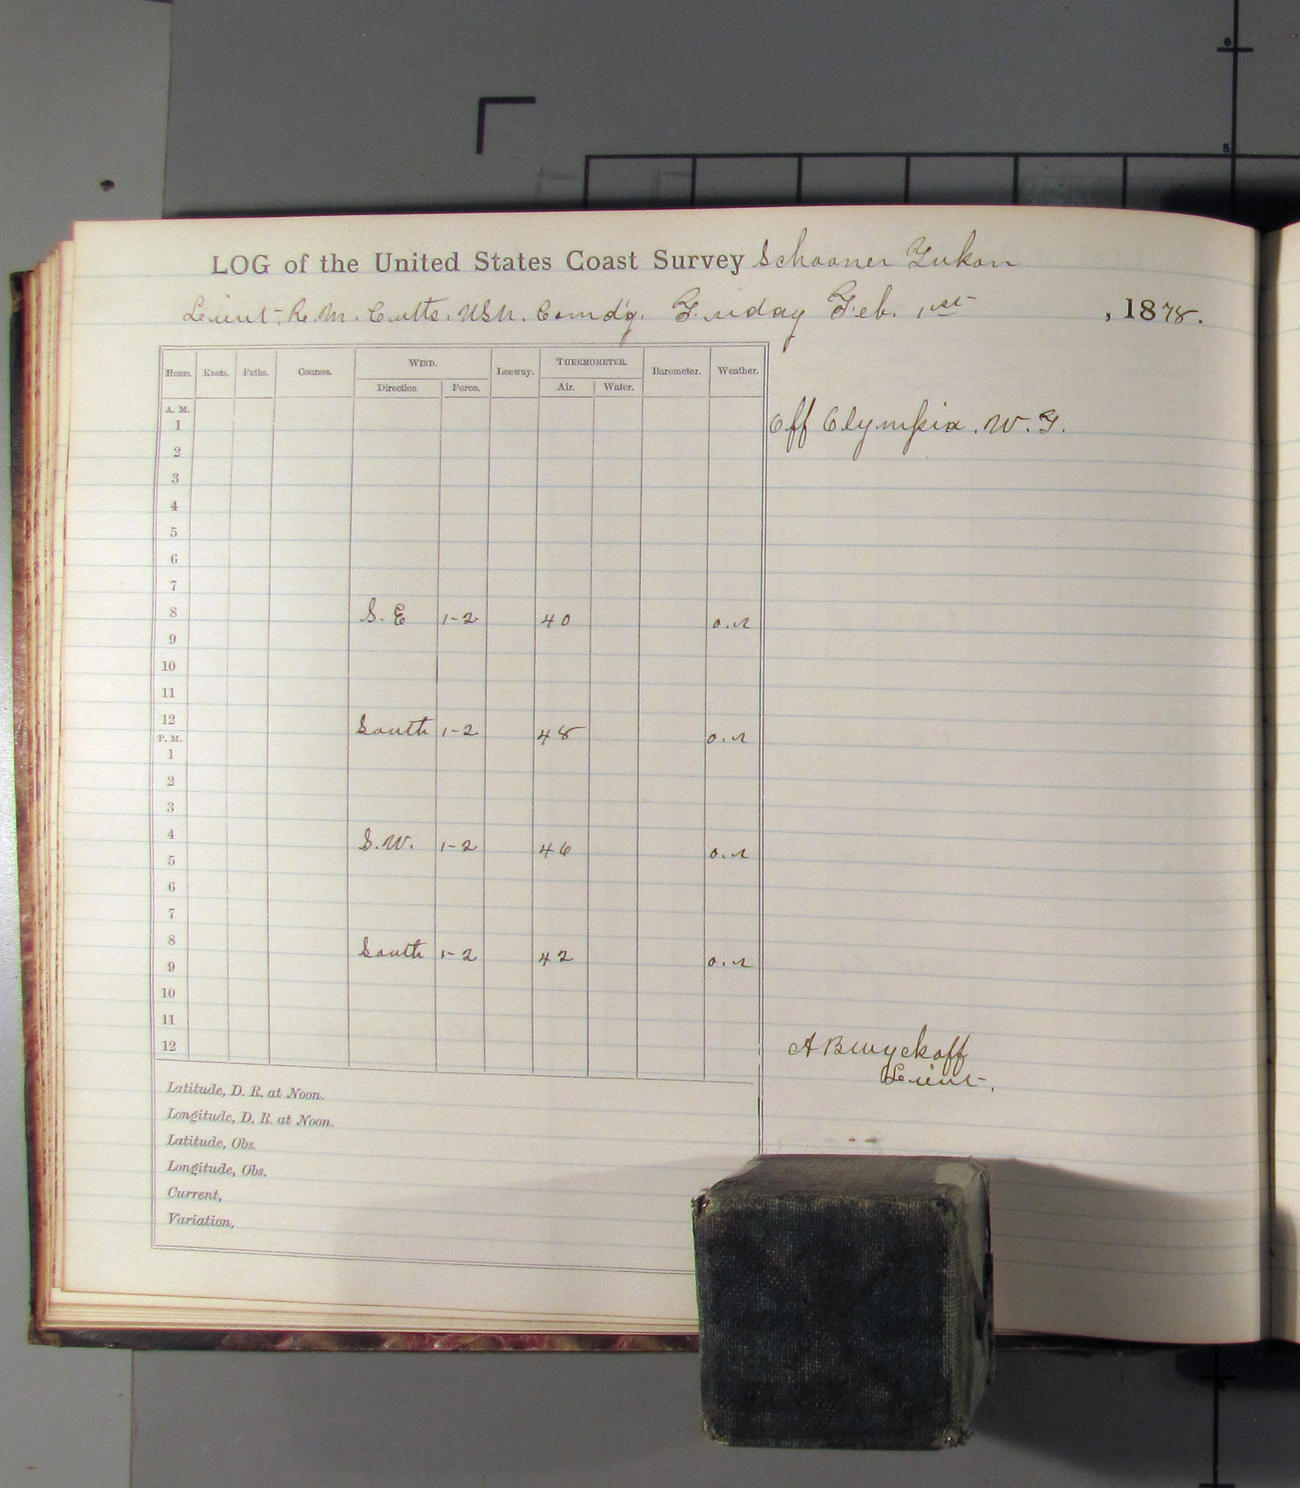 LOG of the United States Coast Survey Schooner Yukon
Lieut. R. M. Cutts. USN. Comdg. Friday Feb. 1st , 1878.
Hours. Knots. Faths. Courses. WIND. Leeway. THERMOMETER. Barometer. Weather.
Direction Force. Air. Water.
A. M.
1 Off Olympia. W. T.
2
3
4
5
6
7
8 S. E 1-2 40 o.r
9
10
11
12 South 1-2 48 o.r
P. M.
1
2
3
4 S.W. 1-2 46 o.r
5
6
7
8 South 1-2 42 o.r
9
10
11
12 A B Wyckoff
Lieut.
Latitude, D. R. at Noon.
Longitude, D. R. at Noon.
Latitude, Obs.
Longitude, Obs.
Current,
Variation,
6
5